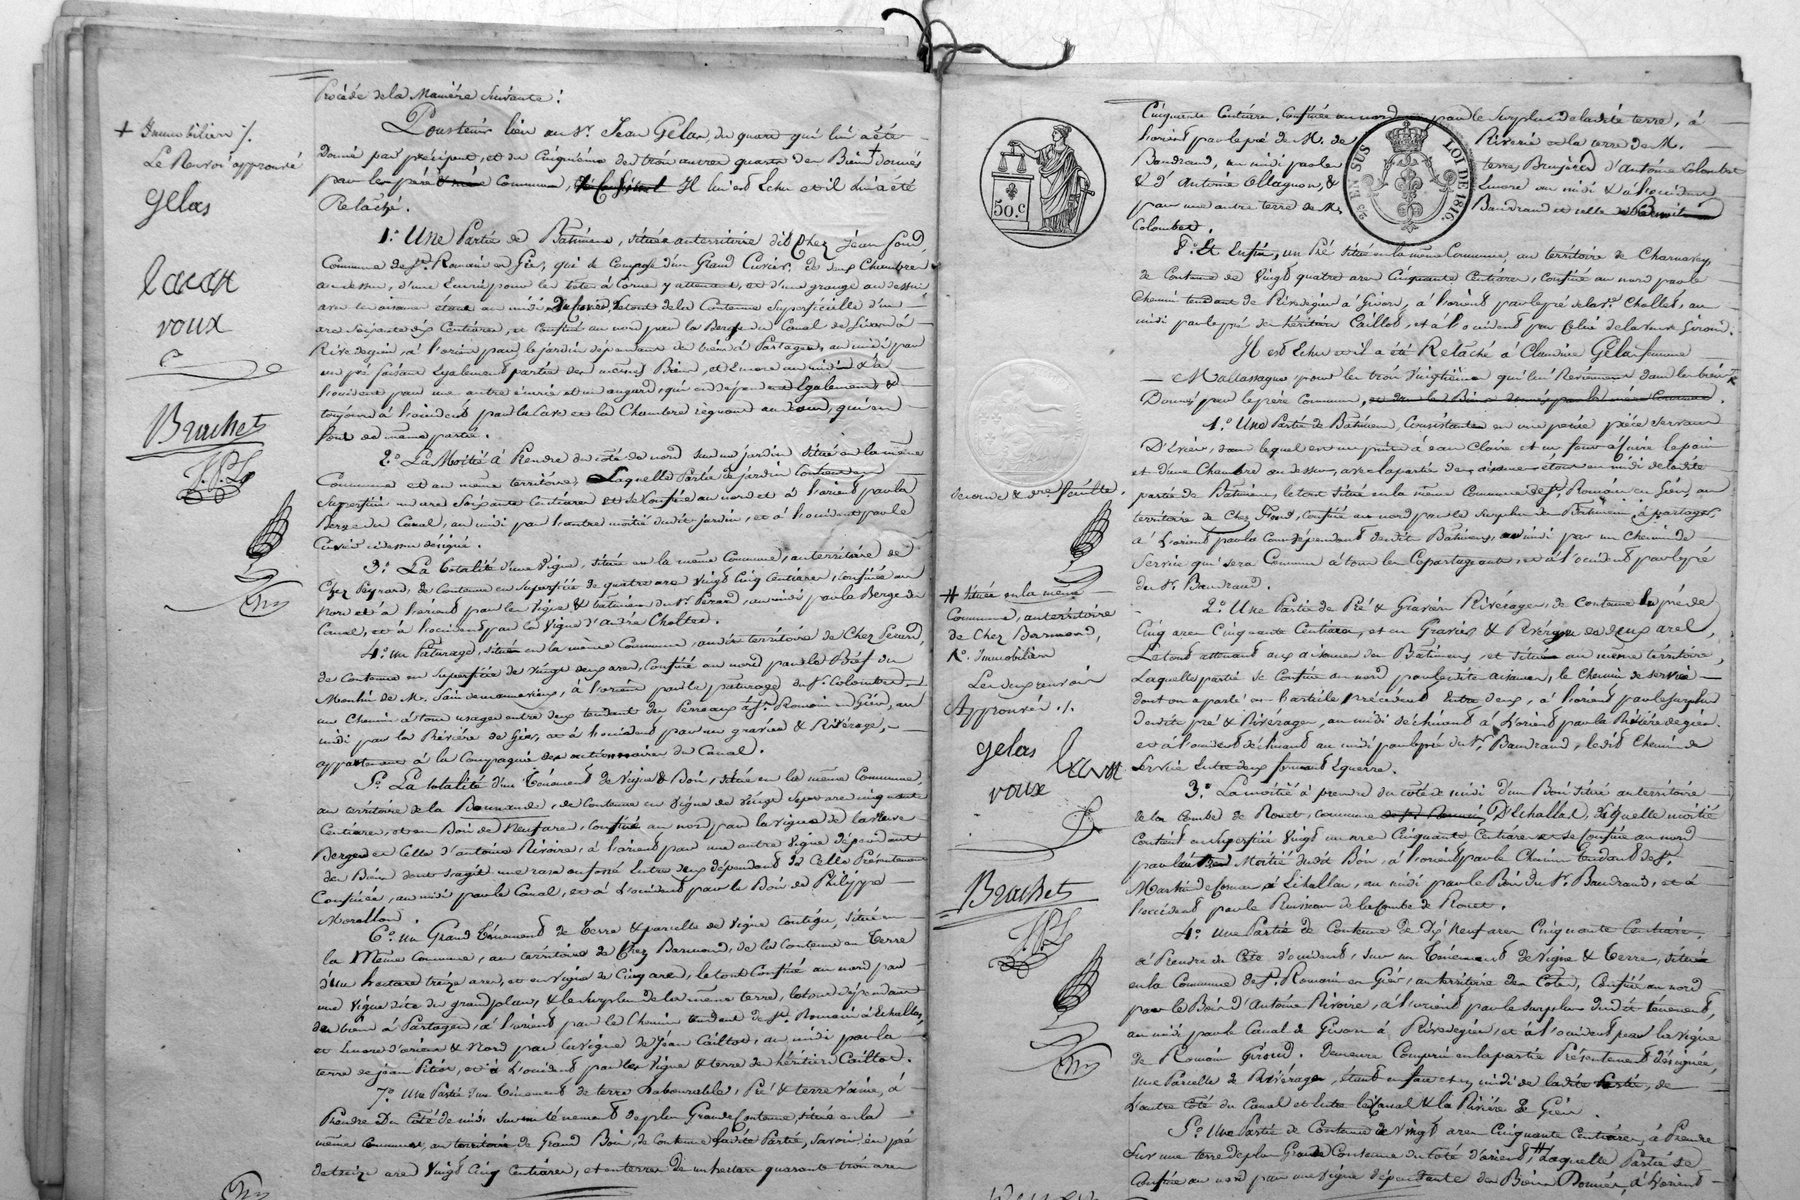 Procédé de la Manière Suivante :
Pour tenir lieu au Sr. Jean Gelas, du quart qui lui a été
donné par préciput, et du Cinquième des trois autres quarts des Biens + donnés
par le père Commun, Il lui est Echu et il lui a été
Relaché.
1.° Une Partie de Bâtimens, située au territoire dit Chez Jean Fond,
Commune de St. Romain en Gier, qui se compose d'un Grand Cuvier, de deux Chambres
au dessus, d'une Ecurie pour les bêtes à Corne y attenant, et d'une grange au dessus
avec les aisances étant au midi du Cuvier, le tout de la Contenue Superficielle d'un
are soixante dix Centiares, et Confiné au nord par la Berge du Canal de Givors à
Rivedegier, à l'orient par le jardin dépendant des biens à Partager, au midi par
un pré faisant également partie des mêmes Biens, et Encore au midi & à
l'occident par une autre écurie et un angard, qui en dépend Egalement &
toujours à l'occident par la Cave et la Chambre régnant au dessus, qui en
font de même partie.
2.° La Moitié à Prendre du côté du nord sur un jardin situé en la même
Commune et au même territoire, Laquelle Partie de jardin Contient en
Superficie un are Soixante Centiares et se Confine au nord et à l'orient par la
Berge du Canal, au midi par l'autre moitié dudit jardin, et à l'occident par le
Cuvier ci dessus désigné.
3.° La totalité d'une Vigne, située en la même Commune, au territoire de
Chez Peyrard, de Contenue en Superficie de quatre ares Vingt Cinq Centiares, confinée au
Nord et à l'orient par les Vigne & bâtimens du Sr. Perard, au midi par la Berge du
Canal, et à l'occident par la Vigne d'André Chollet.
4.° Un Paturage, situé en la même Commune, au dit territoire de Chez
de Contenue en Superficie de Vingt deux ares, Confiné au nord par le Bief du
Moulin de M. à l'orient par le paturage du Sr. Colombet,
un Chemin à tous usages entre deux tendant des Perreaux à St. Romain en Gier, au
midi par la Rivière de Gier, et à l'occident par un gravier & Rivérage,
appartenant à la Compagnie des actionnaires du Canal.
5.° La totalité d'un Ténement de Vigne & Bois, situé en la même Commune,
au territoire de la de Contenue en Vigne de Vingt Sept ares cinquante
Centiares, et en Bois de Neuf ares, Confiné au nord par la vigne de la Veuve
Berger et Celle d'antoine Rivoire, à l'orient par une autre Vigne dépendant
des Biens dont s'agit une rase ou fossé Entre deux dépendant de Celle Présentement
Confinée, au midi par le Canal, et à l'occident par le Bois de Philippe
Morellon.
6.° Un Grand Ténement de Terre & parcelle de Vigne Contigue, situé en
la Même Commune, au territoire de Chez Barmond, de la Contenue en Terre
d'un hectare treize ares, et en Vigne de Cinq ares, le tout Confiné au nord par
une Vigne dite du grand plan, & le Surplus de la même terre, le tout dépendant
des biens à Partager, à l'orient par le Chemin tendant de St. Romain à Echallas,
et Encore d'orient & Nord par la Vigne de Jean Caillot, au midi par la
terre de Jean Pitiot, et à l'occident par les Vigne & terre des héritiers Caillot.
7.° Une Partie d'un Ténement de terre Labourable, Pré & terre Vaine, à
Prendre Du Côté de midi sur un ténement de plus Grande Contenue, située en la
même Commune, au territoire de Grand Bois, de Contenue ladite Partie, Savoir, en pré
de treize ares Vingt Cinq Centiares, et en terre de un hectare quarante trois ares
+ Immobiliers /.
Le Renvoi approuvé
gelas
lacan
voux
Brachet
J.P.L.
Cinquante Centiares, Confinée au nord par le Surplus de ladite terre, à
l'orient par le pré de M. de Rivérie et la terre de M.
Baudrand, au midi par les terres, Bruyères d'Antoine Colombet
& d'Antoine Ollagnon, & Encore au midi & à l'occident
par une autre terre de M. Baudrand et celle de
Colombet.
8.° Et Enfin, un Pré situé en la même Commune, au territoire de Charnavay,
de Contenue de Vingt quatre ares Cinquante Centiares, Confiné au nord par le
Chemin tendant de Rivedegier à Givors, à l'orient par le pré de la Ve. Chollet, au
midi par le pré des héritiers Caillot, et à l'occident par Celui de la Veuve Giroud.
Il est Echu et il a été Relaché à Claudine Gelas femme
Mallassagne, pour les trois Vingtièmes qui lui Reviennent dans les biens
Donnés par le père Commun,
1.° Une Partie de Bâtimens, Consistante en une petite pièce servant
D'Evier, dans lequel est un puits à eau Claire et un four à Cuire le pain
et d'une Chambre au dessus, avec la partie des aisances étant au midi de ladite
partie de Bâtimens, le tout situé en la même Commune de St. Romain en Gier, au
territoire de Chez Fond, confiné au nord par le Surplus des Bâtimens à partager,
à l'orient par la Cour dépendant desdits Bâtimens, au midi par un Chemin de
Service qui sera Commun à tous les Copartageants, et à l'occident par le pré
du Sr. Baudrand.
2.° Une Partie de Pré & Gravier Rivérages, de Contenue le pré de
Cinq ares Cinquante Centiares, et en Gravier & Rivérage de deux ares,
Le tout attenant aux aisances des Bâtimens, et située au même territoire,
Laquelle partie se Confine au nord par lesdites aisances, le Chemin de service
dont on a parlé en l'article Précédent Entre deux, à l'orient par le Surplus
desdits pré & Rivérages, au midi déclinant à L'orient par la Rivière de gier
et à l'occident déclinant au midi par le pré du Sr. Baudrand, ledit Chemin de
Service Entre deux formant Equerre.
3.° La moitié à prendre du côté de midi d'un Bois situé au territoire
de la Combe de Rouet, Commune D'Echallas, de laquelle moitié
Contient en superficie Vingt un ares Cinquante Centiares et se Confine au nord
par l'autre Moitié dudit Bois, à l'orient par le Chemin tendant de St.
Martin de Cornas à Echallas, au midi par le Bois du Sr. Baudrand, et à
l'occident par le Ruisseau de la Combe de Rouet.
4.° Une Partie de Contenue de Dix Neuf ares Cinquante Centiares,
à Prendre du Côté d'occident, sur un Ténement de Vigne & Terre, située
en la Commune de St. Romain en Gier, au territoire des Côtes, Confinée au nord
par le Bois d'Antoine Rivoire, à l'orient par le surplus dudit ténement,
au midi par le Canal de Givors à Rivedegier, et à l'occident par la Vigne
de Romain Giroud. Demeure Compris en la partie Présentement désignée,
une Parcelle de Rivérages, étant en face et au midi de ladite Partie, de
L'autre Côté du Canal et Entre le Canal & la Rivière de Gier.
5.° Une Partie de Contenue de Vingt ares Cinquante Centiares, à Prendre
Sur une terre de plus Grande Contenue du Côté d'orient, # Laquelle Partie se
Confine au nord par une Vigne dépendante des Biens Donnés, à L'orient
50.C
25 EN SUS
LOI DE 1816.
Seconde & dre. feuille.
# située en la même
Commune, au territoire
de Chez Barmond,
Immobiliers
Les deux renvois
Approuvés ./.
gelas
lacan
voux
Brachet
J.P.L.